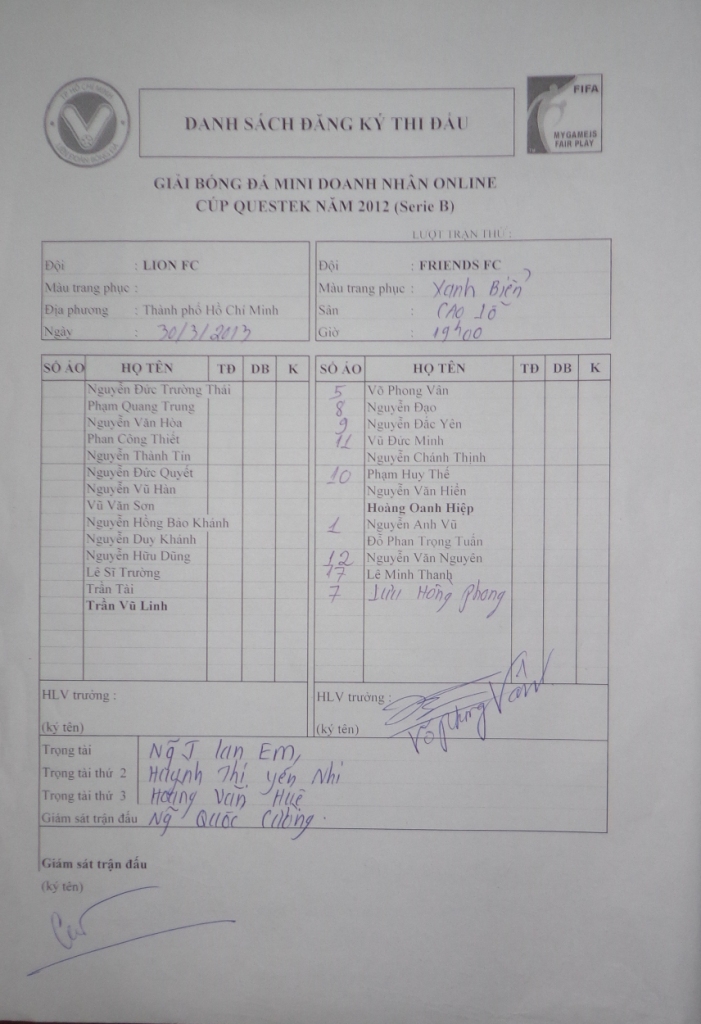 TP HỒ CHÍ MINH
LIÊN ĐOÀN BÓNG ĐÁ
DANH SÁCH ĐĂNG KÝ THI ĐẤU
FIFA
MY GAME IS
FAIR PLAY
GIẢI BÓNG ĐÁ MINI DOANH NHÂN ONLINE
CÚP QUESTEK NĂM 2012 (Serie B)
LƯỢT TRẬN THỨ :
Đội : LION FC
Màu trang phục :
Địa phương : Thành phố Hồ Chí Minh
Ngày : 30/3/2013
Đội : FRIENDS FC
Màu trang phục : Xanh Biển
Sân : CAO LỖ
Giờ : 19h00
SỐ ÁO HỌ TÊN TĐ DB K
Nguyễn Đức Trường Thái
Phạm Quang Trung
Nguyễn Văn Hòa
Phan Công Thiết
Nguyễn Thành Tín
Nguyễn Đức Quyết
Nguyễn Vũ Hàn
Vũ Văn Sơn
Nguyễn Hồng Bảo Khánh
Nguyễn Duy Khánh
Nguyễn Hữu Dũng
Lê Sĩ Trường
Trần Tài
Trần Vũ Linh
HLV trưởng :
(ký tên)
SỐ ÁO HỌ TÊN TĐ DB K
5 Võ Phong Vân
8 Nguyễn Đạo
9 Nguyễn Đắc Yên
11 Vũ Đức Minh
Nguyễn Chánh Thịnh
10 Phạm Huy Thế
Nguyễn Văn Hiển
Hoàng Oanh Hiệp
1 Nguyễn Anh Vũ
Đỗ Phan Trọng Tuấn
12 Nguyễn Văn Nguyên
17 Lê Minh Thanh
7 Lưu Hồng Phong
HLV trưởng :
(ký tên) Võ Phong Vân
Trọng tài Ng T Lan Em,
Trọng tài thứ 2 Huỳnh Thị Yến Nhi
Trọng tài thứ 3 Hoàng Văn Huệ
Giám sát trận đấu Ng Quốc Cường.
Giám sát trận đấu
(ký tên)